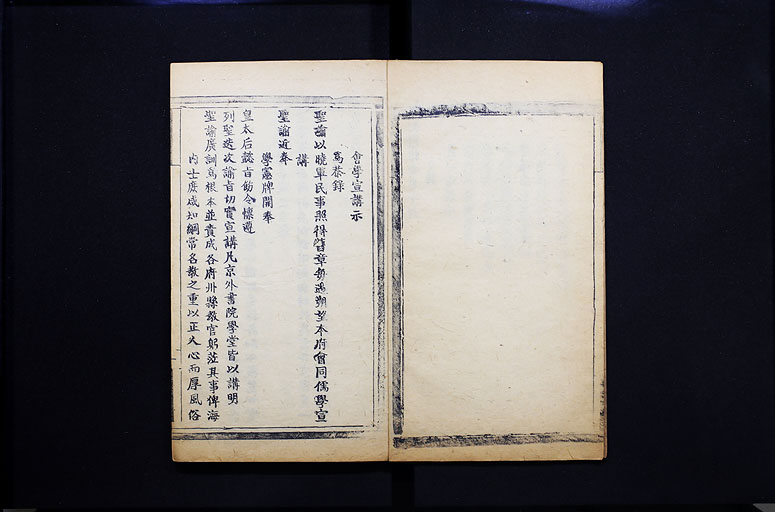 會學宣講示
為恭錄
聖諭以曉軍民事照得舊章每遇朔望本府會同儒學宣
講
聖諭近奉
學憲牌開奉
皇太后懿旨飭令懍遵
列聖迭次諭旨切實宣講凡京外書院學堂皆以講明
聖諭廣訓爲根本並責成各府州縣教官躬蒞其事俾海
內士庶咸知綱常名教之重以正人心而厚風俗